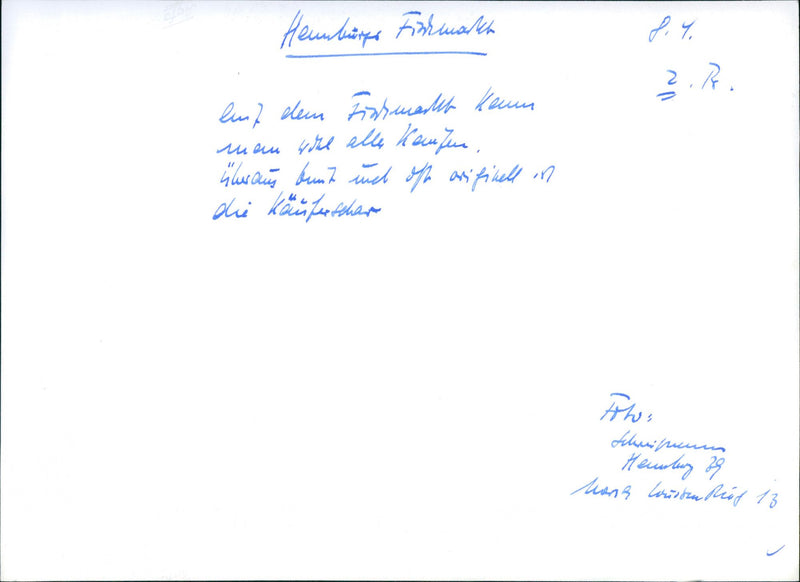 Hamburger Fischmarkt
8. 4.
2. Pr.
Auf dem Fischmarkt kann
man wohl alles kaufen.
Überaus bunt und oft originell ist
die Käuferschar
Foto:
Hamburg 39
13